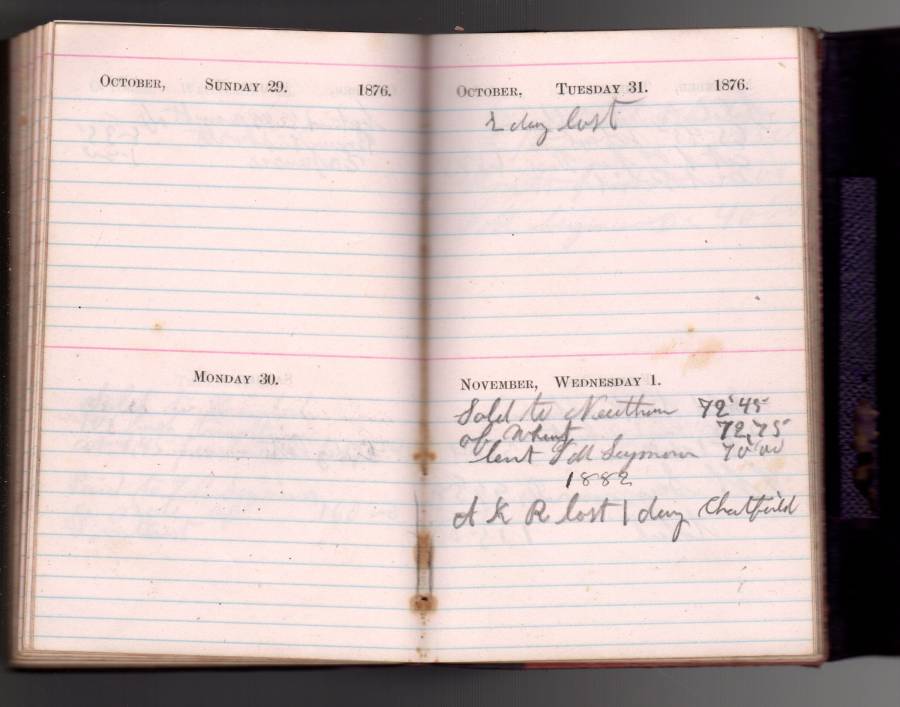 OCTOBER, SUNDAY 29. 1876.
MONDAY 30.
OCTOBER, TUESDAY 31. 1876.
1 day lost
NOVEMBER, WEDNESDAY 1.
Sold to 72'45
of Wheat 72,75
lent Seymour 70'00
1882
A K R lost 1 day Chatfield